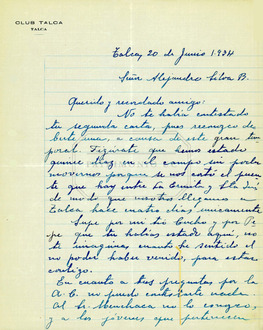 CLUB TALCA
TALCA
Talca, 20 de Junio 1934
Señor Alejandro Silva B.
Querido y recordado amigo:
No te había contestado
tu segunda carta, pues
a causa de este gran tem
poral. Figúrate que hemos estado
quince días en el campo sin poder
movernos porque se nos cortó el puen
te que hay entre la y
de modo que nosotros llegamos a
Talca hace cuatro días únicamente.
Supe por mi tía y por
pe que tu habías estado aquí, no
te imaginas cuanto he sentido el
no poder haber venido, para estar
contigo.
En cuanto a tus preguntas por la
A.C. no puedo contestarte nada.
Al Sr. Menchaca no lo conozco,
y a los jóvenes que pertenecen